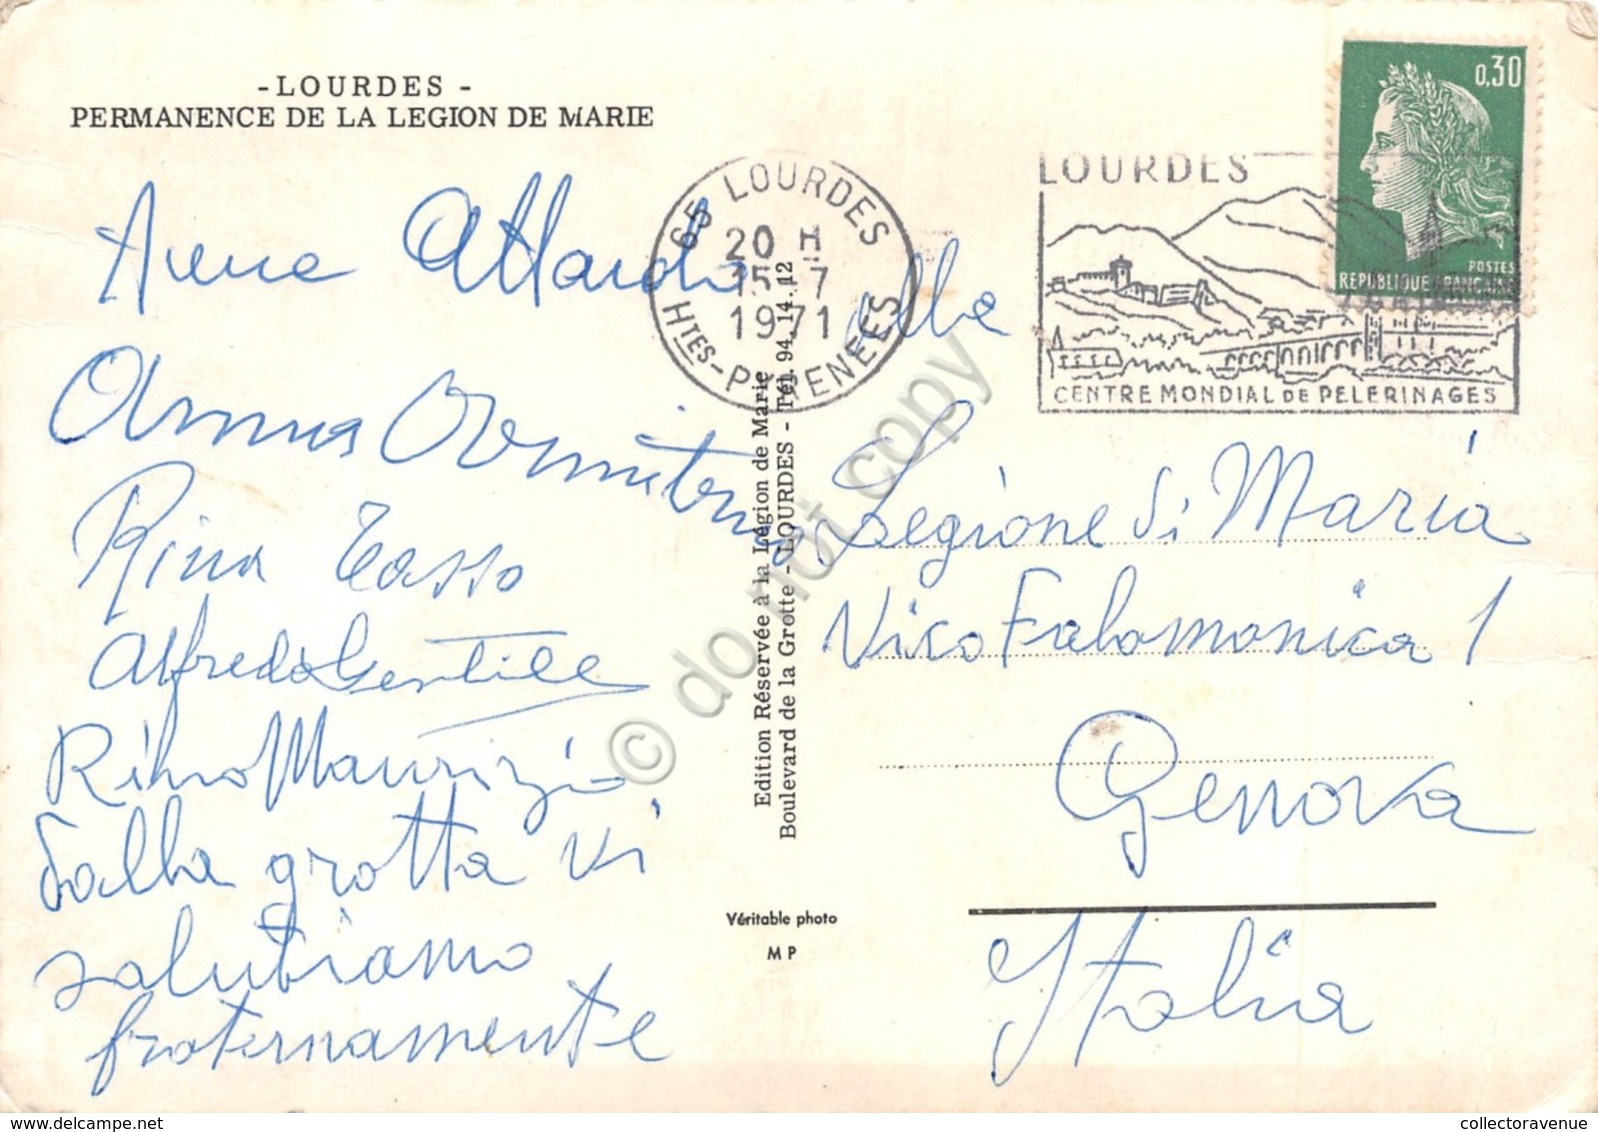 - LOURDES -
PERMANENCE DE LA LEGION DE MARIE
0,30
POSTES
REPUBLIQUE FRANCAISE
65 LOURDES
20 H
15 - 7
1971
HTES - PYRENEES
LOURDES
CENTRE MONDIAL DE PELERINAGES
Anna
Rina Tasso
Alfredo Gentile
Rino Maurizio
Dalla grotta vi
salutiamo
fraternamente
Edition Réservée à la Légion de Marie
Boulevard de la Grotte - LOURDES - Tél. 94.14.12
Véritable photo
M P
alla
Legione di Maria
Vico Falamonica 1
Genova
Italia
© do not copy
collectoravenue.com